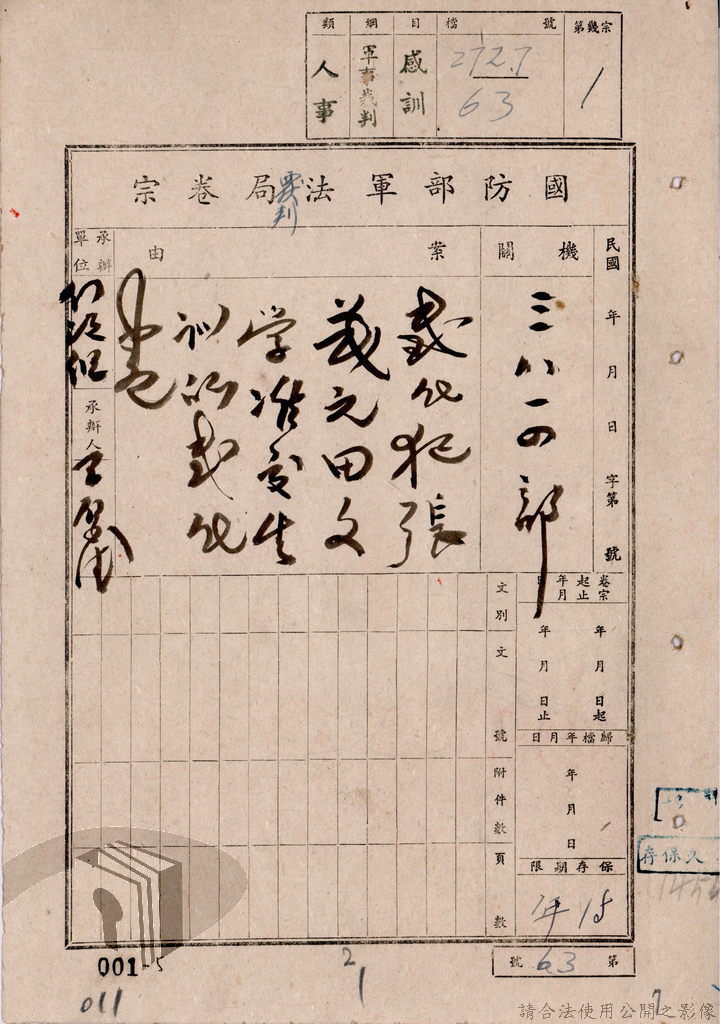 類 綱 目 檔 號 第幾宗
人事 軍事裁判 感訓 272.7 63 1
國防部軍法覆判局卷宗
民國 年 月 日 字第 號
機關
三八一四部
案由
感化犯張
茂元田文
学准交生
訓所感化
承辦單位
承辦人
卷宗起止年月日
年 月 日起
年 月 日止
歸檔年月日
年 月 日
保存期限
15年
文別
文號
附件數
頁數
第 63 號
久保存
001-5
011
2
1
請合法使用公開之影像